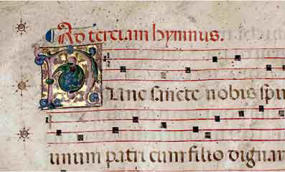 Ad terciam hymnus.
Nunc sancte nobis spi
unum patri cum filio dignar